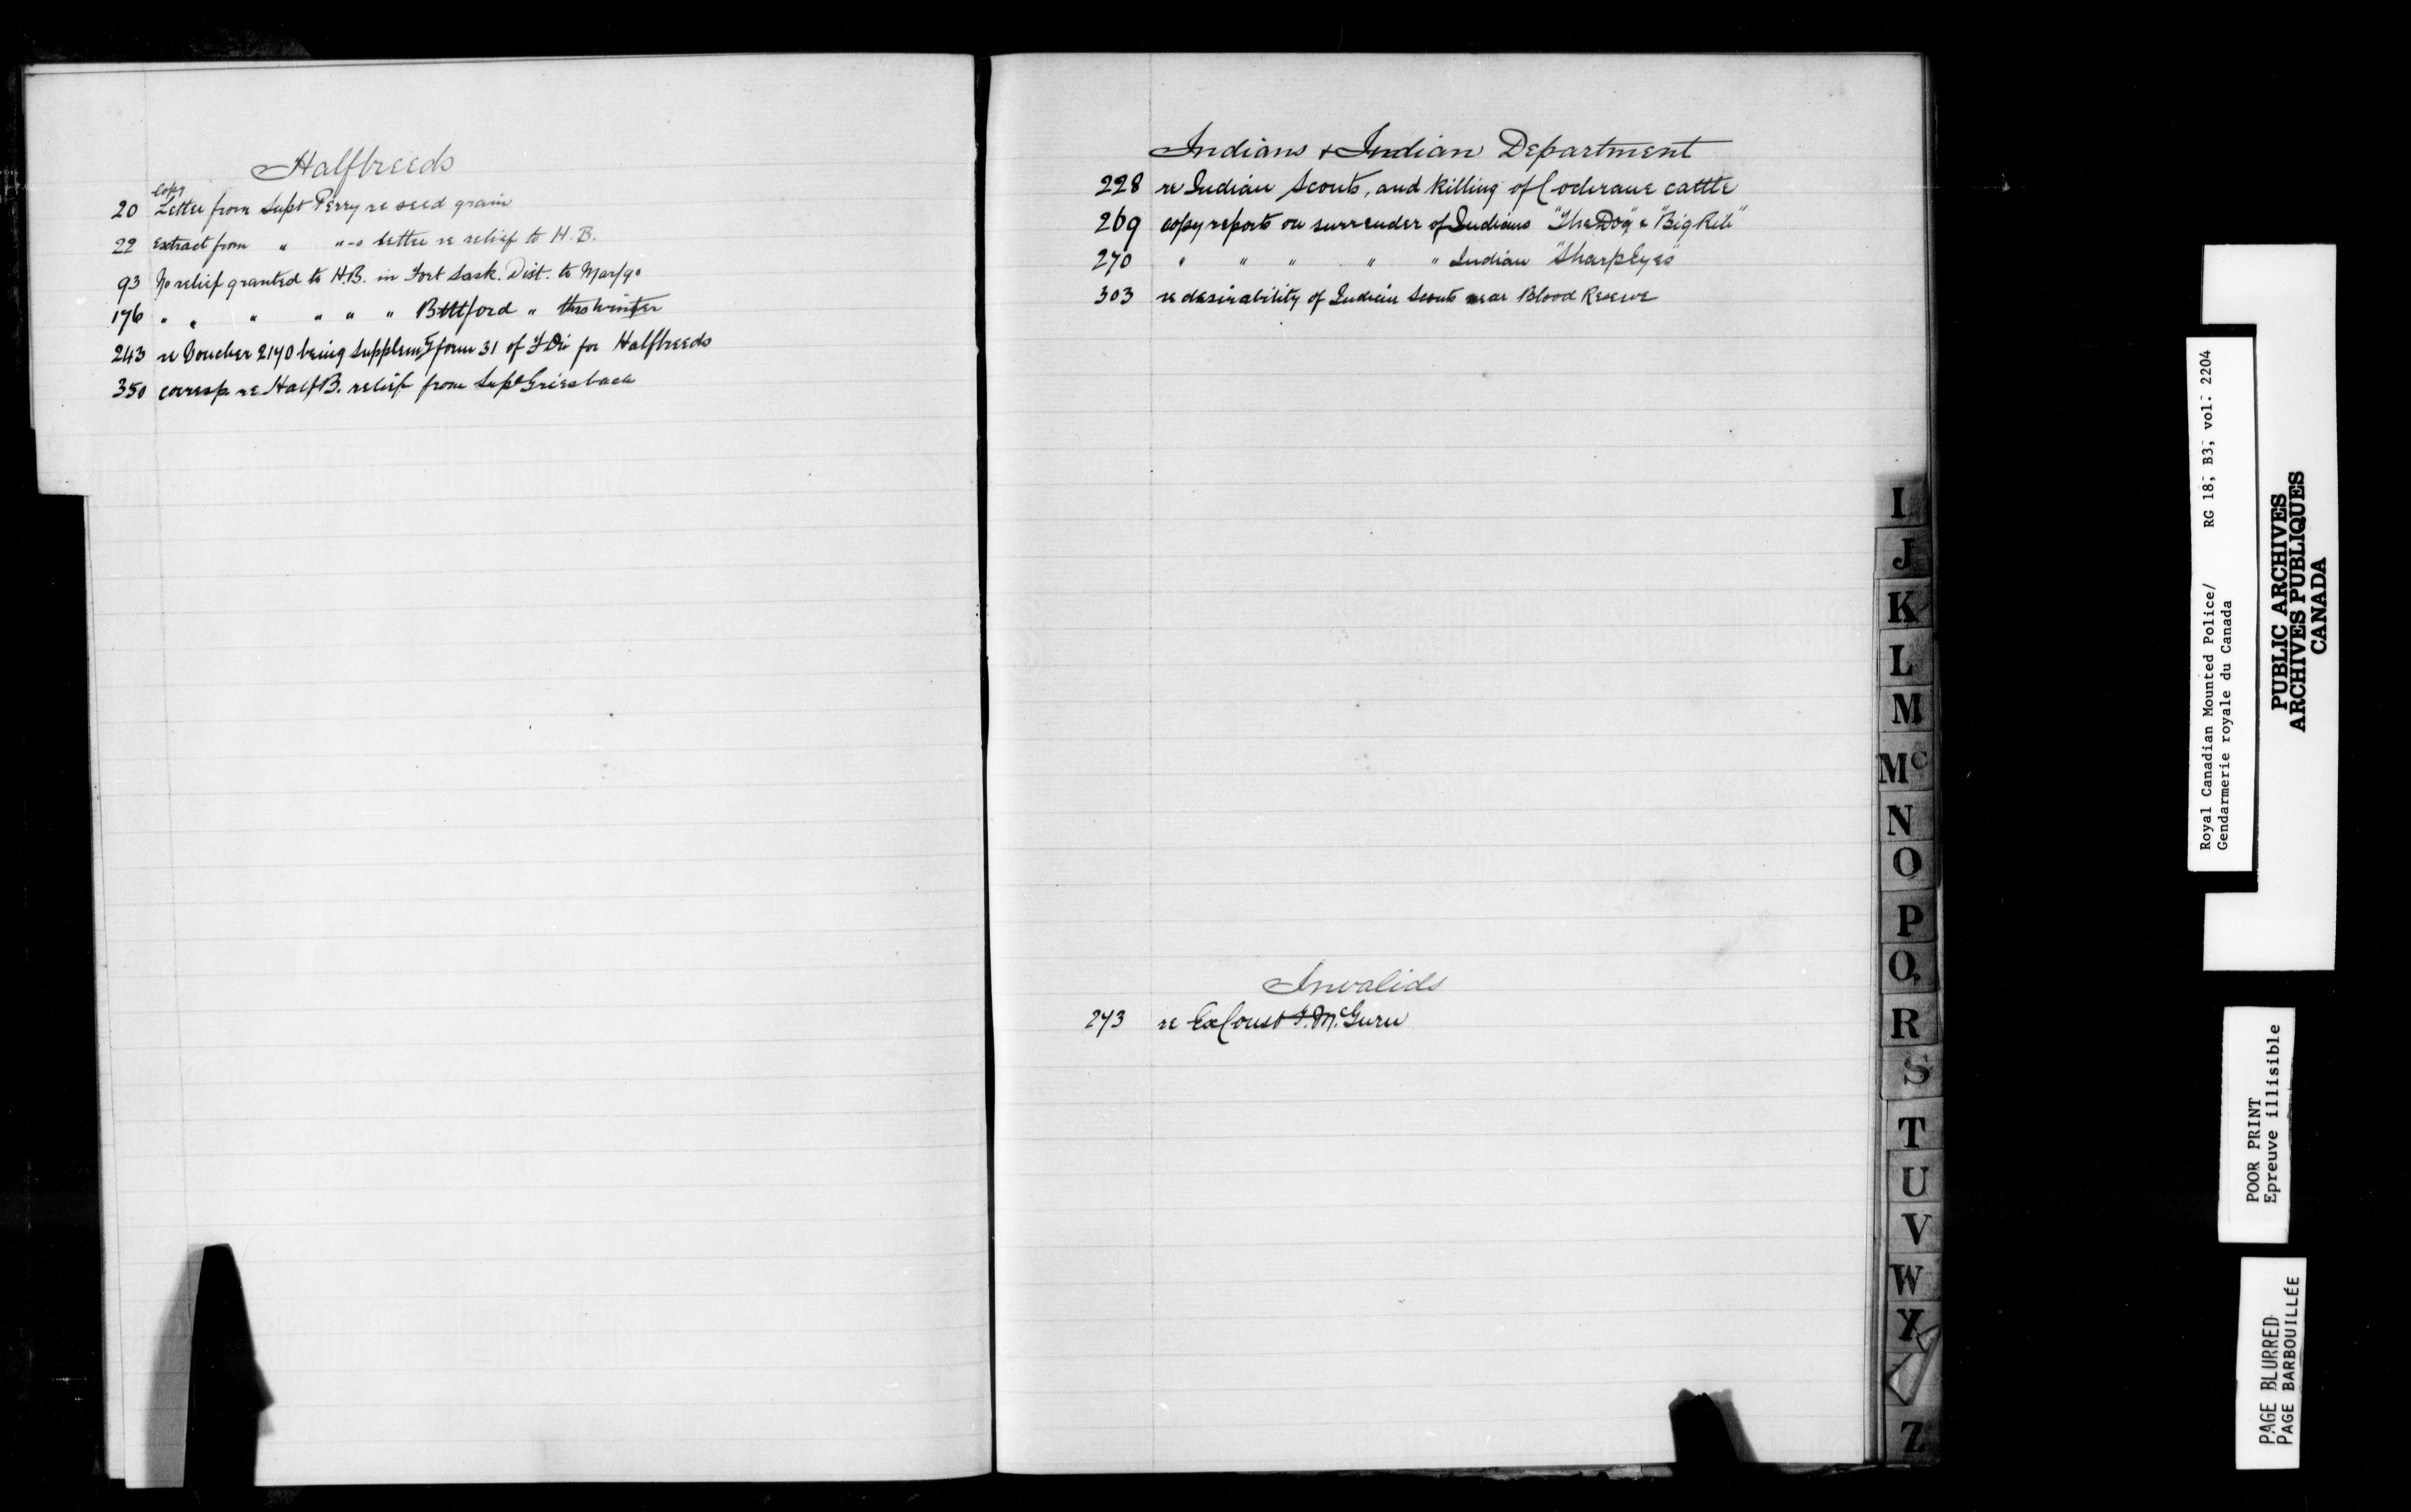 Halfbreeds
copy
20 Letter from Supt Perry re seed grain
22 Extract from " "-s letter re relief to H.B.
93 No relief granted to H.B. in Fort Sask. Dist. to Mar/90
176 " " " " " " Battford " this winter
243 re Voucher 2140 being supplem'y form 31 of F Div for Halfbreeds
350 corresp re HalfB. relief from Supt Griesbach
Indians & Indian Department
228 re Indian Scouts, and killing of Cochrane cattle
269 copy reports on surrender of Indians "The Dog" & "Big Rib"
270 " " " " " Indian "Sharp Eyes"
303 re desirability of Indian Scouts near Blood Reserve
Invalids
273 re Ex Const McGurn
I
J
K
L
M
Mc
N
O
P
Q
R
S
T
U
V
W
X
Z
Royal Canadian Mounted Police/ RG 18; B3; vol: 2204
Gendarmerie royale du Canada
PUBLIC ARCHIVES
ARCHIVES PUBLIQUES
CANADA
POOR PRINT
Epreuve illisible
PAGE BLURRED
PAGE BARBOUILLÉE